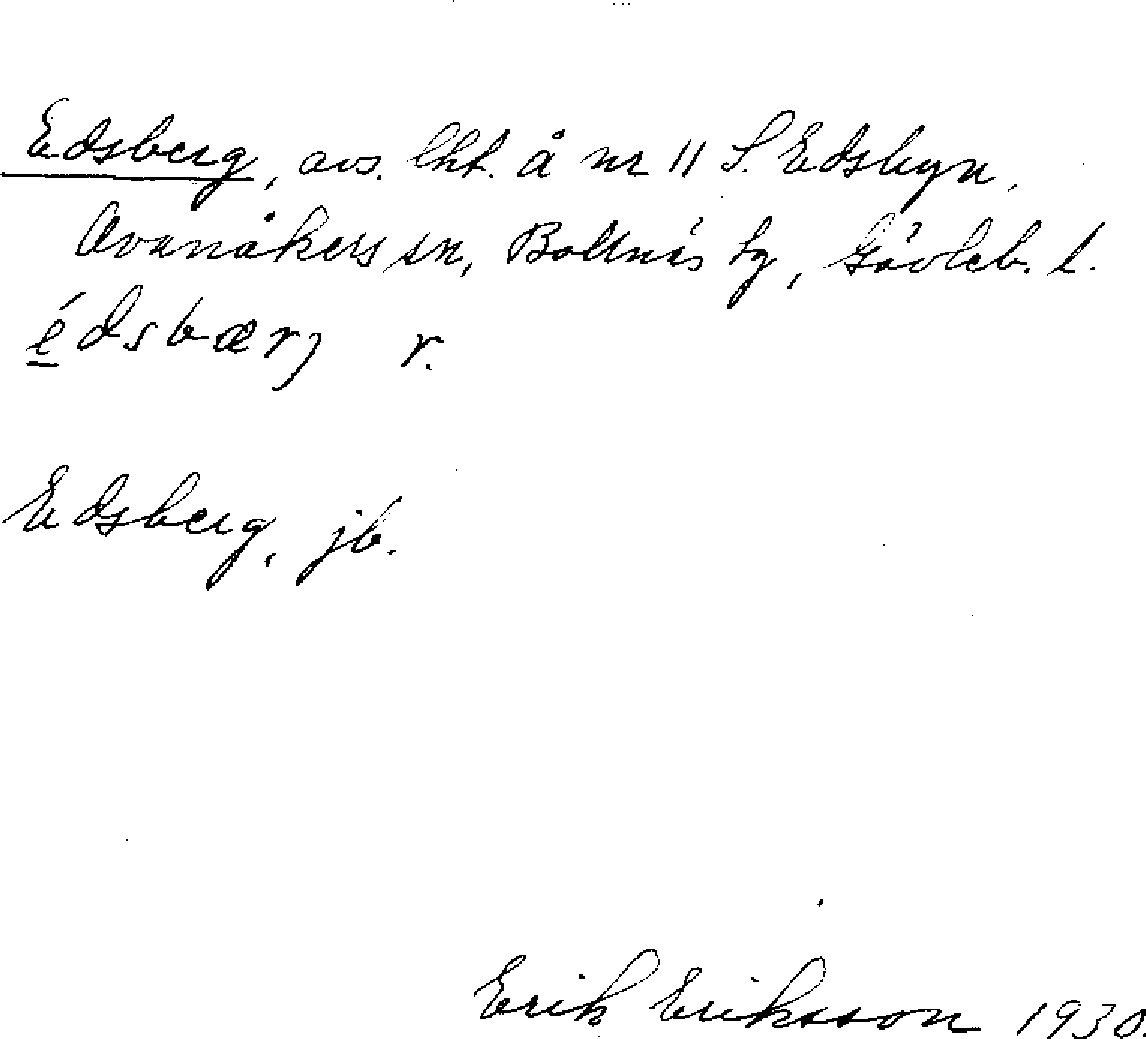 Edsberg, avs. lht. å nr 11 S. Edsbyn,
Ovanåkers sn, Bollnäs tg, Gävleb. l.
é̱dsbærj r.
Edsberg, jb.
Erik Eriksson 1930.